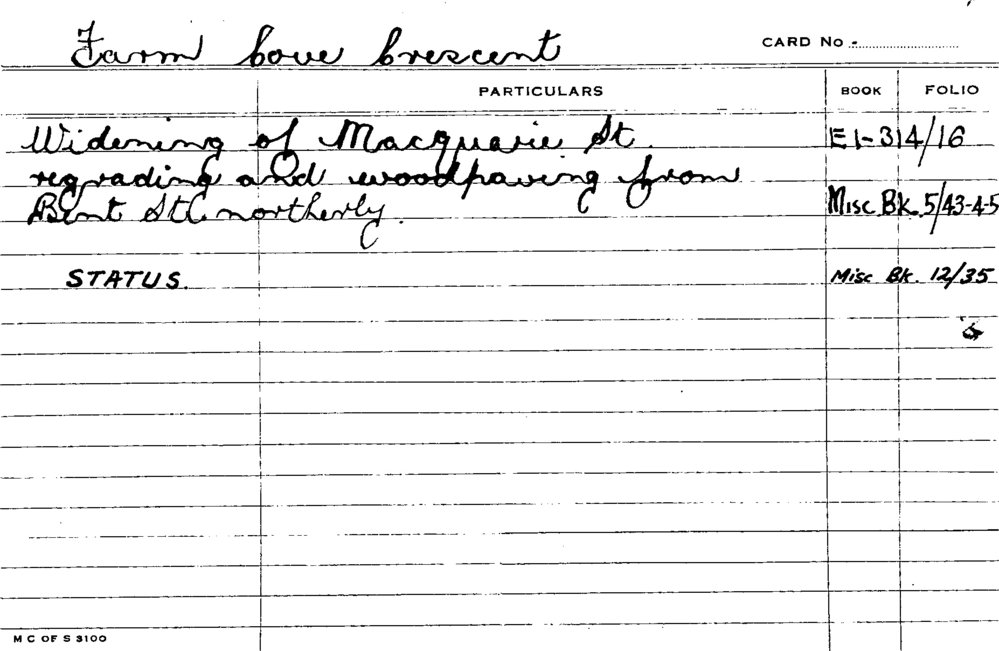 Farm Cove Crescent CARD No.
PARTICULARS BOOK FOLIO
Widening of Macquarie St. E1-314/16
regrading and woodpaving from
Bent St northerly. Misc Bk. 5/43-4-5
STATUS. Misc Bk. 12/35
M C OF S 3100